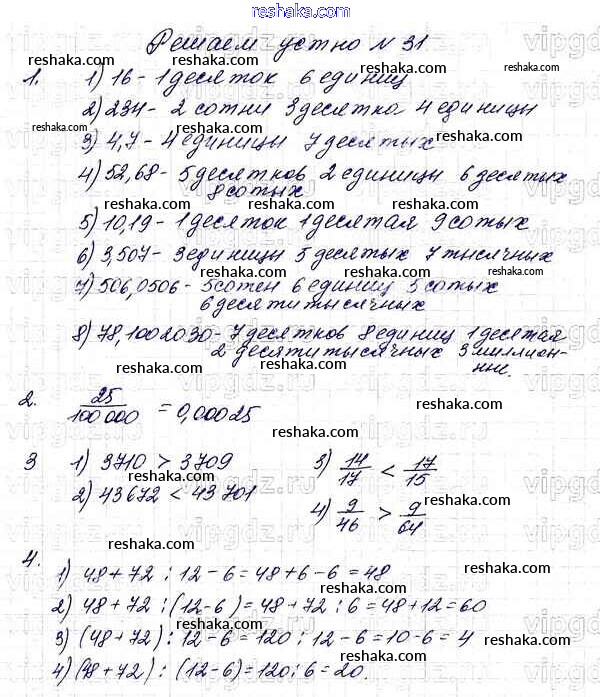 reshaka.com
Решаем устно № 31
1. 1) 16 - 1 десяток 6 единиц
reshaka.com reshaka.com
2) 234 - 2 сотни 3 десятка 4 единицы
reshaka.com reshaka.com
3) 4,7 - 4 единицы 7 десятых
reshaka.com
4) 52,68 - 5 десятков 2 единицы 6 десятых
8 сотых
reshaka.com
5) 10,19 - 1 десяток 1 десятая 9 сотых
reshaka.com
6) 3,507 - 3 единицы 5 десятых 7 тысячных
reshaka.com reshaka.com
7) 506,0506 - 5 сотен 6 единиц 5 сотых
6 десятитысячных
reshaka.com
8) 78,1002030 - 7 десятков 8 единиц 1 десятая
2 десятитысячных 3 миллион-
ные.
reshaka.com
2. 25/100 000 = 0,00025
reshaka.com
3 1) 3710 > 3709
3) 14/17 < 17/15
reshaka.com
2) 43672 < 43701
reshaka.com
4) 9/46 > 9/64
reshaka.com
reshaka.com
4.
1) 48 + 72 : 12 - 6 = 48 + 6 - 6 = 48
reshaka.com
2) 48 + 72 : (12 - 6) = 48 + 72 : 6 = 48 + 12 = 60
reshaka.com
3) (48 + 72) : 12 - 6 = 120 : 12 - 6 = 10 - 6 = 4
reshaka.com reshaka.com
4) (48 + 72) : (12 - 6) = 120 : 6 = 20.
reshaka.com